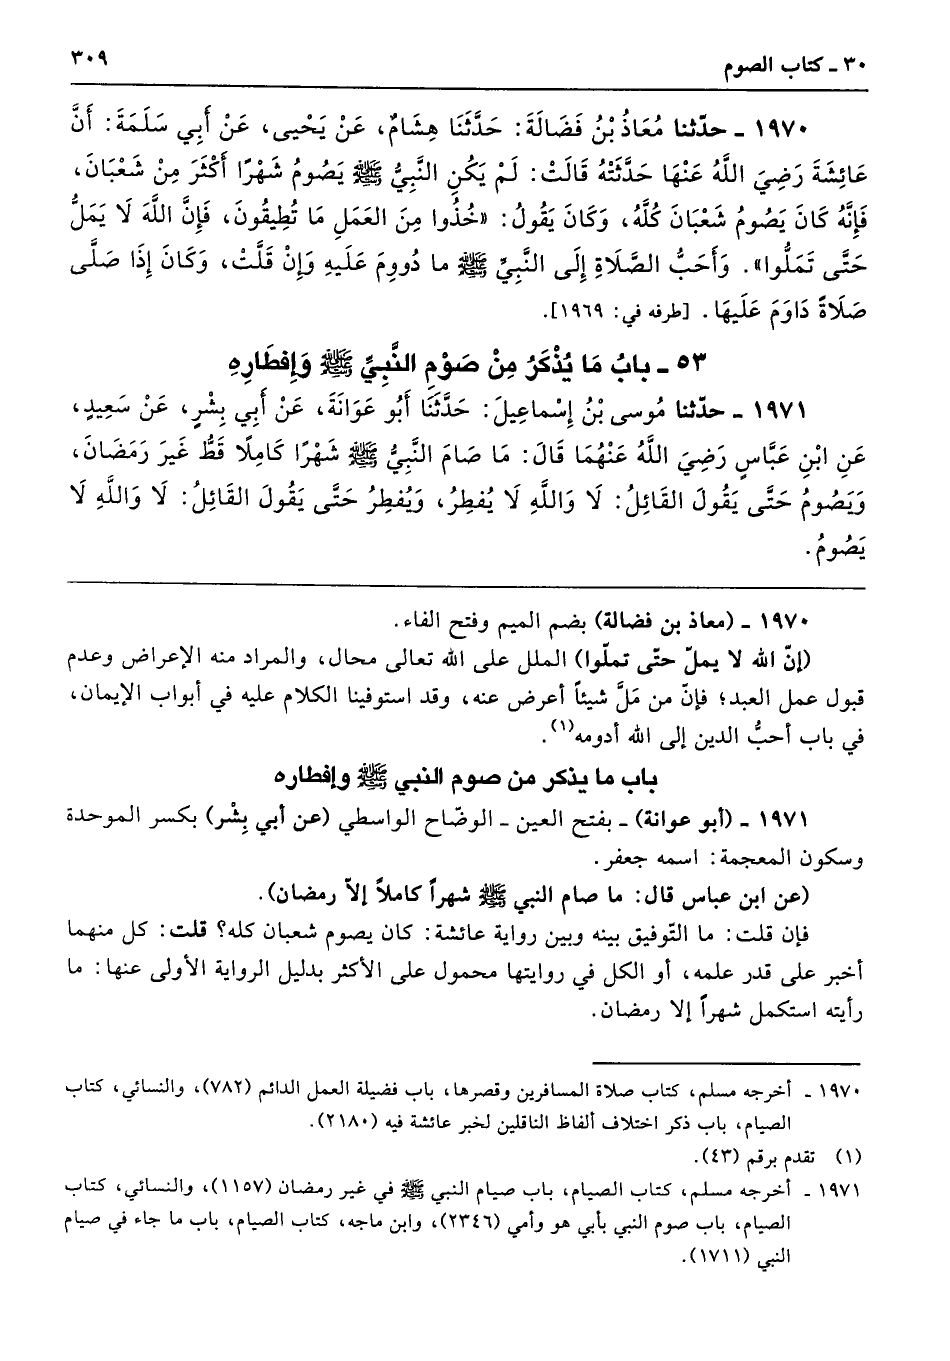 ٣٠ ـ كتاب الصوم
٣٠٩
١٩٧٠ ـ حدّثنا مُعَاذُ بْنُ فَضَالَةَ: حَدَّثَنَا هِشَامٌ، عَنْ يَحْيى، عَنْ أَبِي سَلَمَةَ: أَنَّ
عَائِشَةَ رَضِيَ اللَّهُ عَنْهَا حَدَّثَتْهُ قَالَتْ: لَمْ يَكُنِ النَّبِيُّ ﷺ يَصُومُ شَهْرًا أَكْثَرَ مِنْ شَعْبَانَ،
فَإِنَّهُ كَانَ يَصُومُ شَعْبَانَ كُلَّهُ، وَكَانَ يَقُولُ: «خُذُوا مِنَ العَمَلِ مَا تُطِيقُونَ، فَإِنَّ اللَّهَ لَا يَمَلُّ
حَتَّى تَمَلُّوا». وَأَحَبُّ الصَّلَاةِ إِلَى النَّبِيِّ ﷺ ما دُووِمَ عَلَيهِ وَإِنْ قَلَّتْ، وَكَانَ إِذَا صَلَّى
صَلَاةً دَاوَمَ عَلَيهَا. [طرفه في: ١٩٦٩].
٥٣ ـ بابُ مَا يُذْكَرُ مِنْ صَوْمِ النَّبِيِّ ﷺ وَإِفطَارِهِ
١٩٧١ ـ حدّثنا مُوسى بْنُ إِسْماعِيلَ: حَدَّثَنَا أَبُو عَوَانَةَ، عَنْ أَبِي بِشْرٍ، عَنْ سَعِيدٍ،
عَنِ ابْنِ عَبَّاسٍ رَضِيَ اللَّهُ عَنْهُمَا قَالَ: مَا صَامَ النَّبِيُّ ﷺ شَهْرًا كَامِلًا قَطُّ غَيرَ رَمَضَانَ،
وَيَصُومُ حَتَّى يَقُولَ القَائِلُ: لَا وَاللَّهِ لَا يُفطِرُ، وَيُفطِرُ حَتَّى يَقُولَ القَائِلُ: لَا وَاللَّهِ لَا
يَصُومُ.
١٩٧٠ ـ (معاذ بن فضالة) بضم الميم وفتح الفاء.
(إنّ الله لا يملّ حتّى تملّوا) الملل على الله تعالى محال، والمراد منه الإعراض وعدم
قبول عمل العبد؛ فإنّ من مَلَّ شيئاً أعرض عنه، وقد استوفينا الكلام عليه في أبواب الإيمان،
في باب أحبُّ الدين إلى الله أدومه(١).
باب ما يذكر من صوم النبي ﷺ وإفطاره
١٩٧١ ـ (أبو عوانة) ـ بفتح العين ـ الوضّاح الواسطي (عن أبي بِشْر) بكسر الموحدة
وسكون المعجمة: اسمه جعفر.
(عن ابن عباس قال: ما صام النبي ﷺ شهراً كاملاً إلاّ رمضان).
فإن قلت: ما التّوفيق بينه وبين رواية عائشة: كان يصوم شعبان كله؟ قلت: كل منهما
أخبر على قدر علمه، أو الكل في روايتها محمول على الأكثر بدليل الرواية الأولى عنها: ما
رأيته استكمل شهراً إلا رمضان.
١٩٧٠ ـ أخرجه مسلم، كتاب صلاة المسافرين وقصرها، باب فضيلة العمل الدائم (٧٨٢)، والنسائي، كتاب
الصيام، باب ذكر اختلاف ألفاظ الناقلين لخبر عائشة فيه (٢١٨٠).
(١) تقدم برقم (٤٣).
١٩٧١ ـ أخرجه مسلم، كتاب الصيام، باب صيام النبي ﷺ في غير رمضان (١١٥٧)، والنسائي، كتاب
الصيام، باب صوم النبي بأبي هو وأمي (٢٣٤٦)، وابن ماجه، كتاب الصيام، باب ما جاء في صيام
النبي (١٧١١).